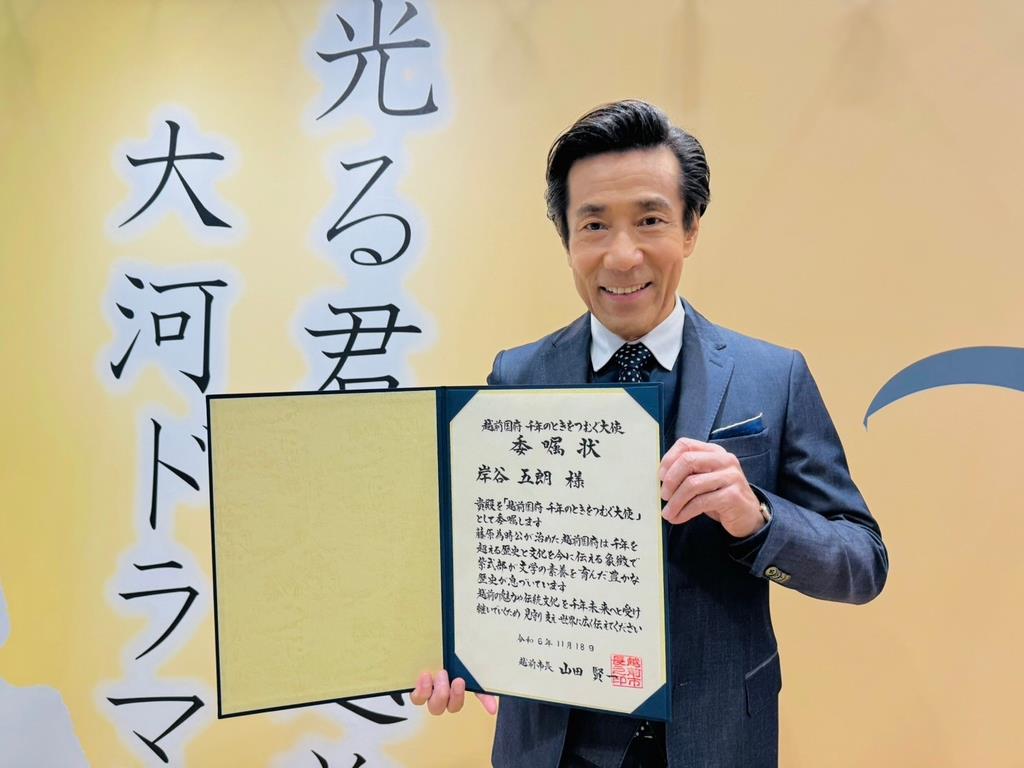 大河ドラマ
光る君
越前国府 千年のときをつむぐ大使
委嘱状
岸谷 五朗 様
貴殿を「越前国府 千年のときをつむぐ大使」
として委嘱します
藤原為時公が治めた越前国府は千年を
超える歴史と文化を今に伝える象徴で
紫式部が文学の素養を育んだ豊かな
歴史が息づいています
越前の魅力や伝統文化を千年未来へと受け
継いでいくため 見守り支え 世界に広く伝えてください
令和6年11月18日
越前市長 山田 賢一
越前市長之印